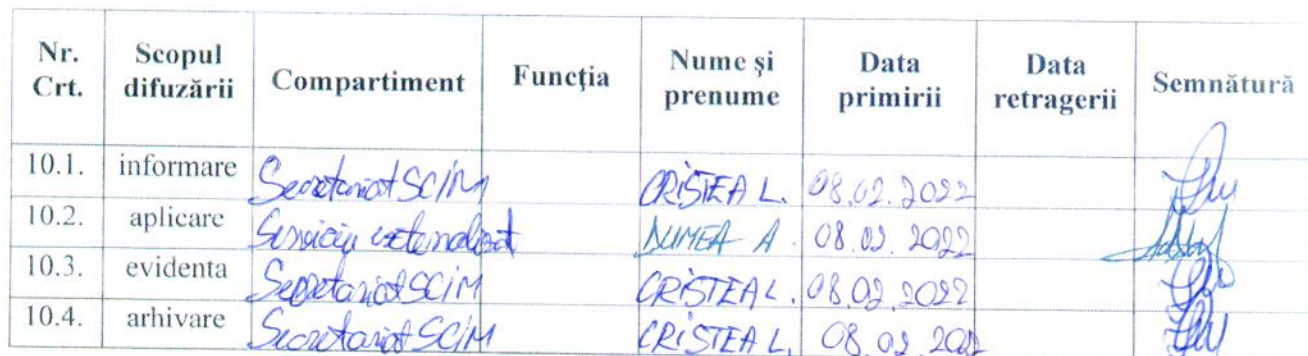 Nr. Crt. Scopul difuzării Compartiment Funcția Nume și prenume Data primirii Data retragerii Semnătură
10.1. informare Secretariat SCIM CRISTEA L. 08.02.2022
10.2. aplicare Serviciu externalizat DUMEA A. 08.02.2022
10.3. evidenta Secretariat SCIM CRISTEA L. 08.02.2022
10.4. arhivare Secretariat SCIM CRISTEA L. 08.02.2022